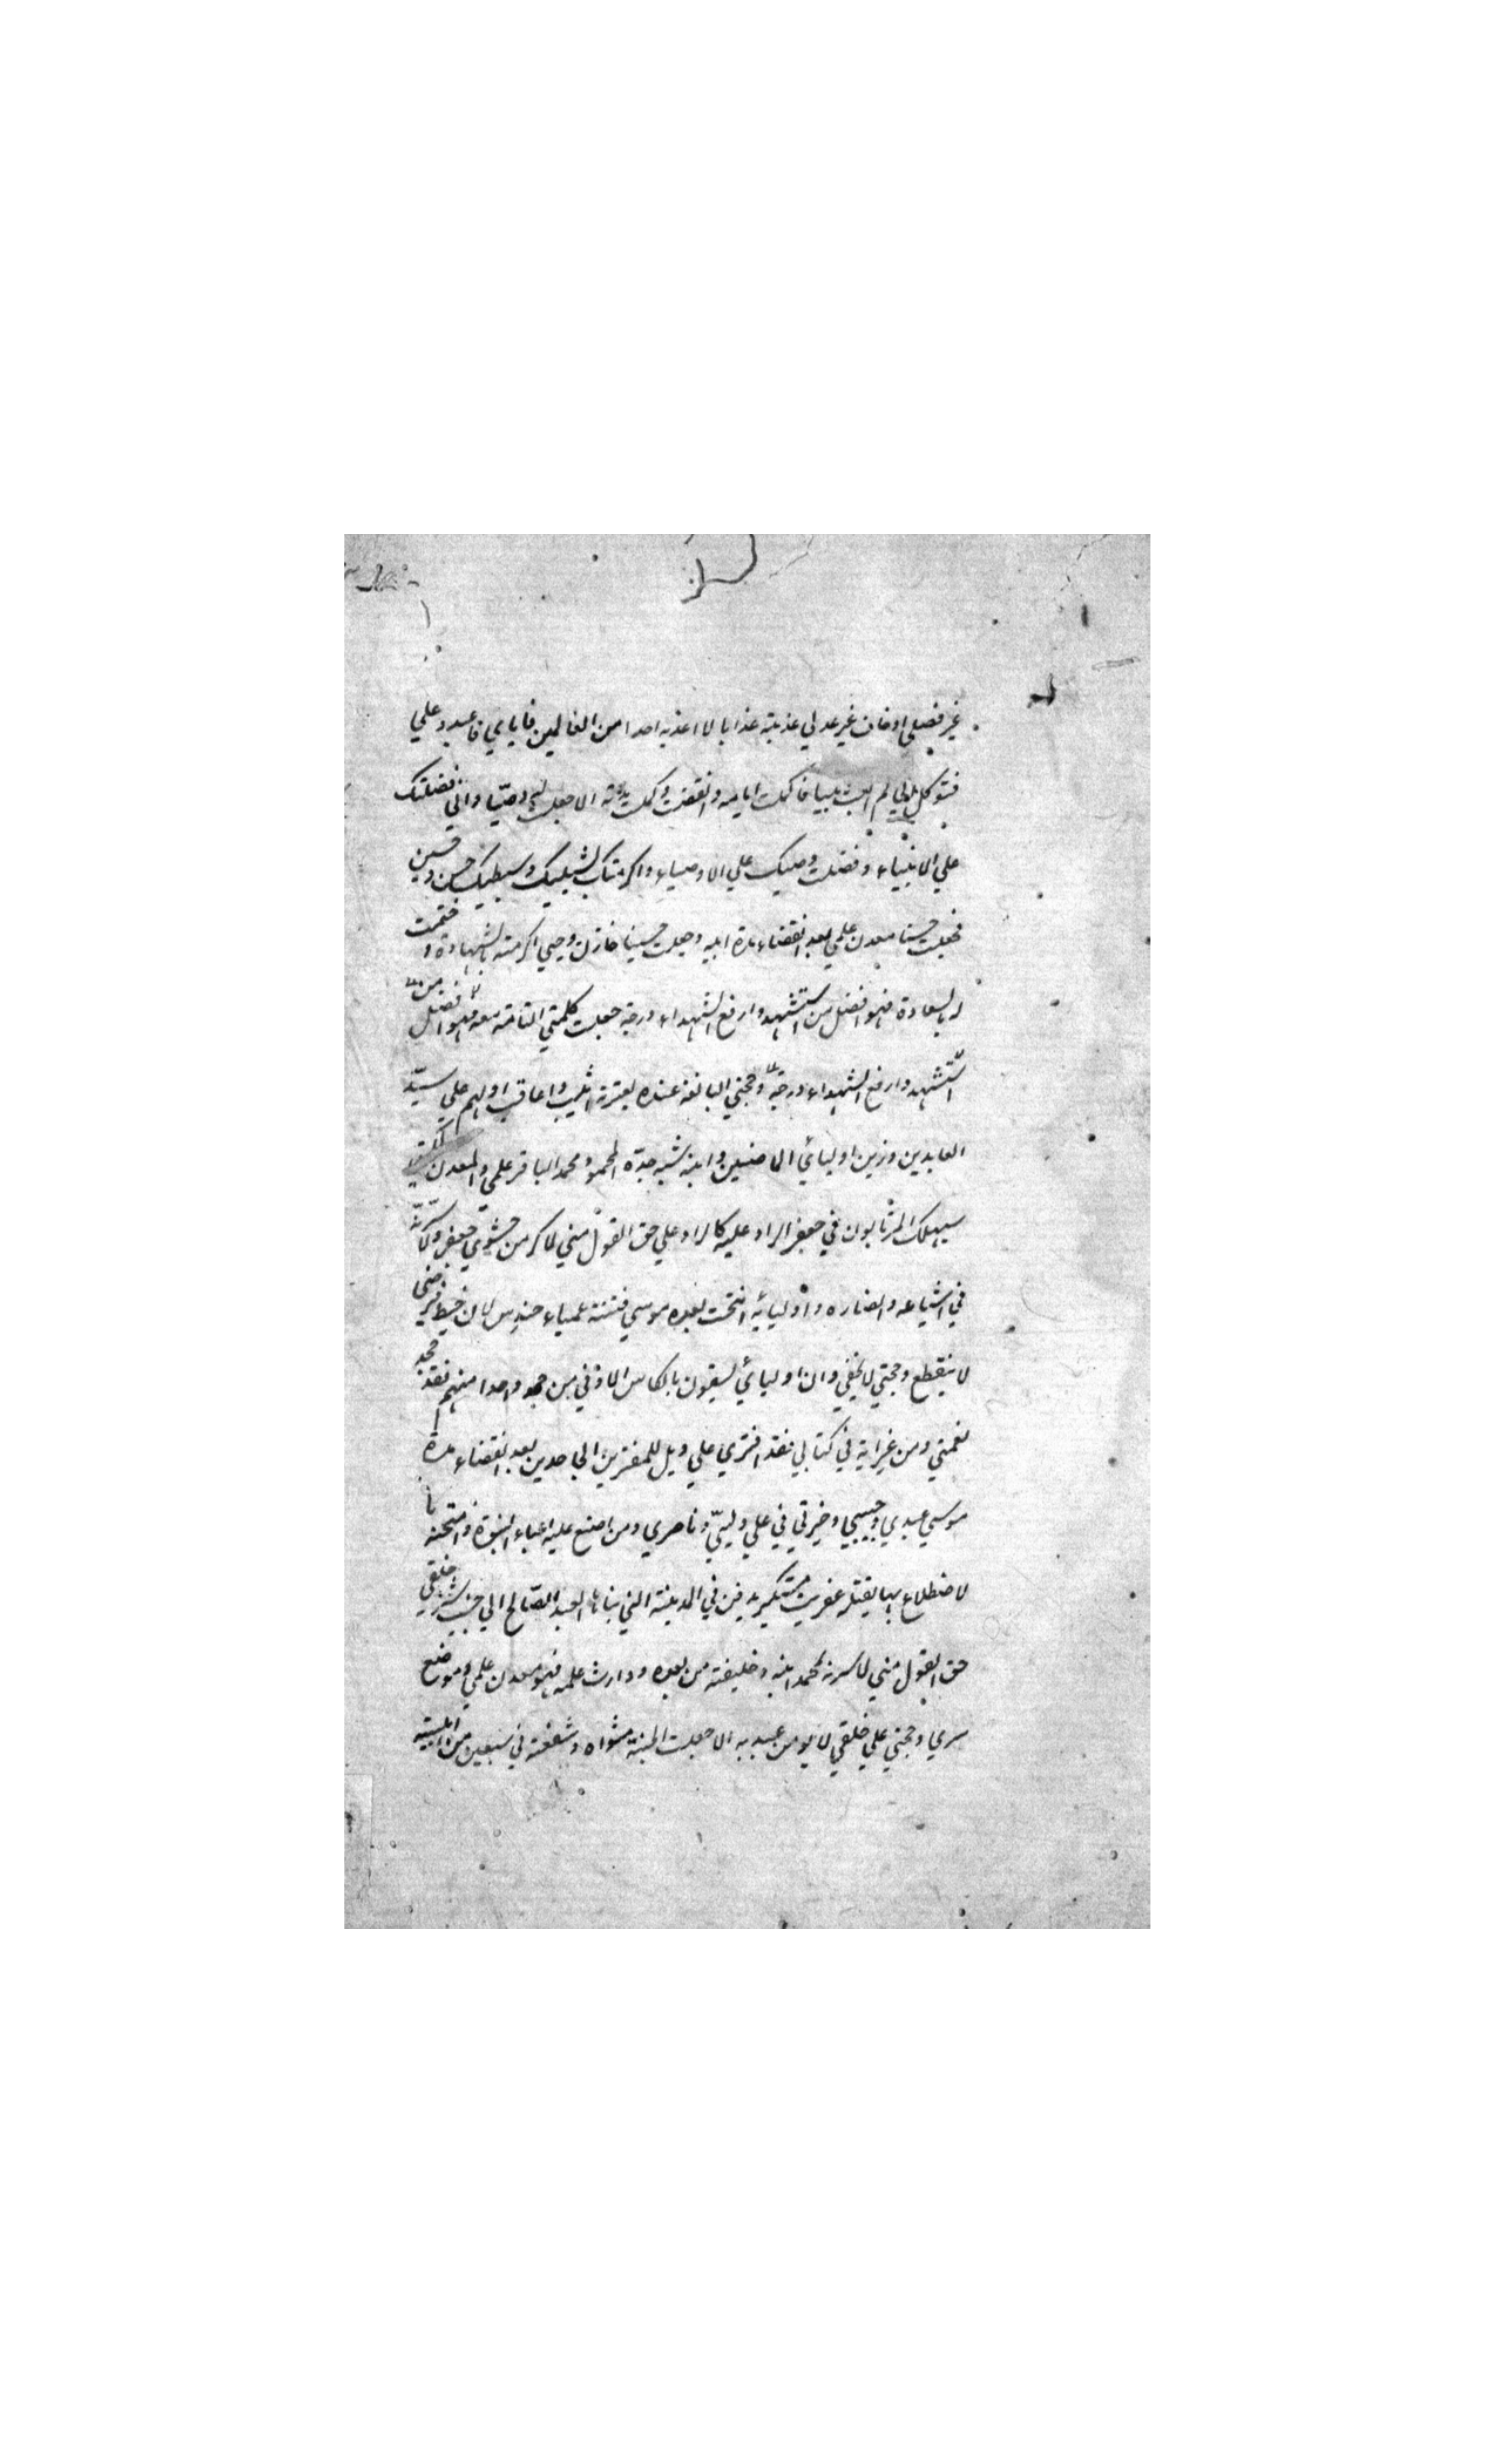 غير فضلي او خاف غير عدلي عذبته عذابا لا اعذبه احدا من العالمين فاياي فاعبد وعلي
فتوكل اني لم ابعث نبيا فاكملت ايامه وانقضت مدته الا جعلت له وصيا واني فضلتك
علي الانبياء وفضلت وصيك علي الاوصياء واكرمتك بشبليك وسبطيك حسن وحسين
فجعلت حسنا معدن علمي بعد انقضاء مدة ابيه وجعلت حسينا خازن وحيي اكرمته بالشهادة وختمت
له بالسعادة فهو افضل من استشهد وارفع الشهداء درجة جعلت كلمتي التامة معه فهو افضل من
استشهد وارفع الشهداء درجة وحجتي البالغة عنده بعترته اثيب واعاقب اولهم علي سيد
العابدين وزين اوليائي الماضين وابنه شبه جده المحمود محمد الباقر علمي والمعدن
سيهلك المرتابون في جعفر الراد عليه كالراد علي حق القول مني لاكرمن مثوي جعفر ولاسرنه
في اشياعه وانصاره واوليائه انتحت بعده موسي فتنة عمياء حندس لان خيط فرضي
لا ينقطع وحجتي لا تخفي وان اوليائي يسقون بالكاس الاوفي من جحد واحدا منهم فقد جحد
نعمتي ومن غير اية في كتابي فقد افتري علي ويل للمفترين الجاحدين بعد انقضاء مدة
موسي عبدي وحبيبي وخيرتي في علي وليي وناصري ومن اضع عليه اعباء النبوة وامتحنه با
لاضطلاع بها يقتله عفريت مستكبر يدفن في المدينة التي بناها العبد الصالح الي جنب شر خلقي
حق القول مني لاسرنه بمحمد ابنه وخليفته من بعده ووارث علمه فهو معدن علمي وموضع
سري وحجتي علي خلقي لا يومن عبد به الا جعلت الجنة مثواه وشفعته في سبعين من اهل بيته